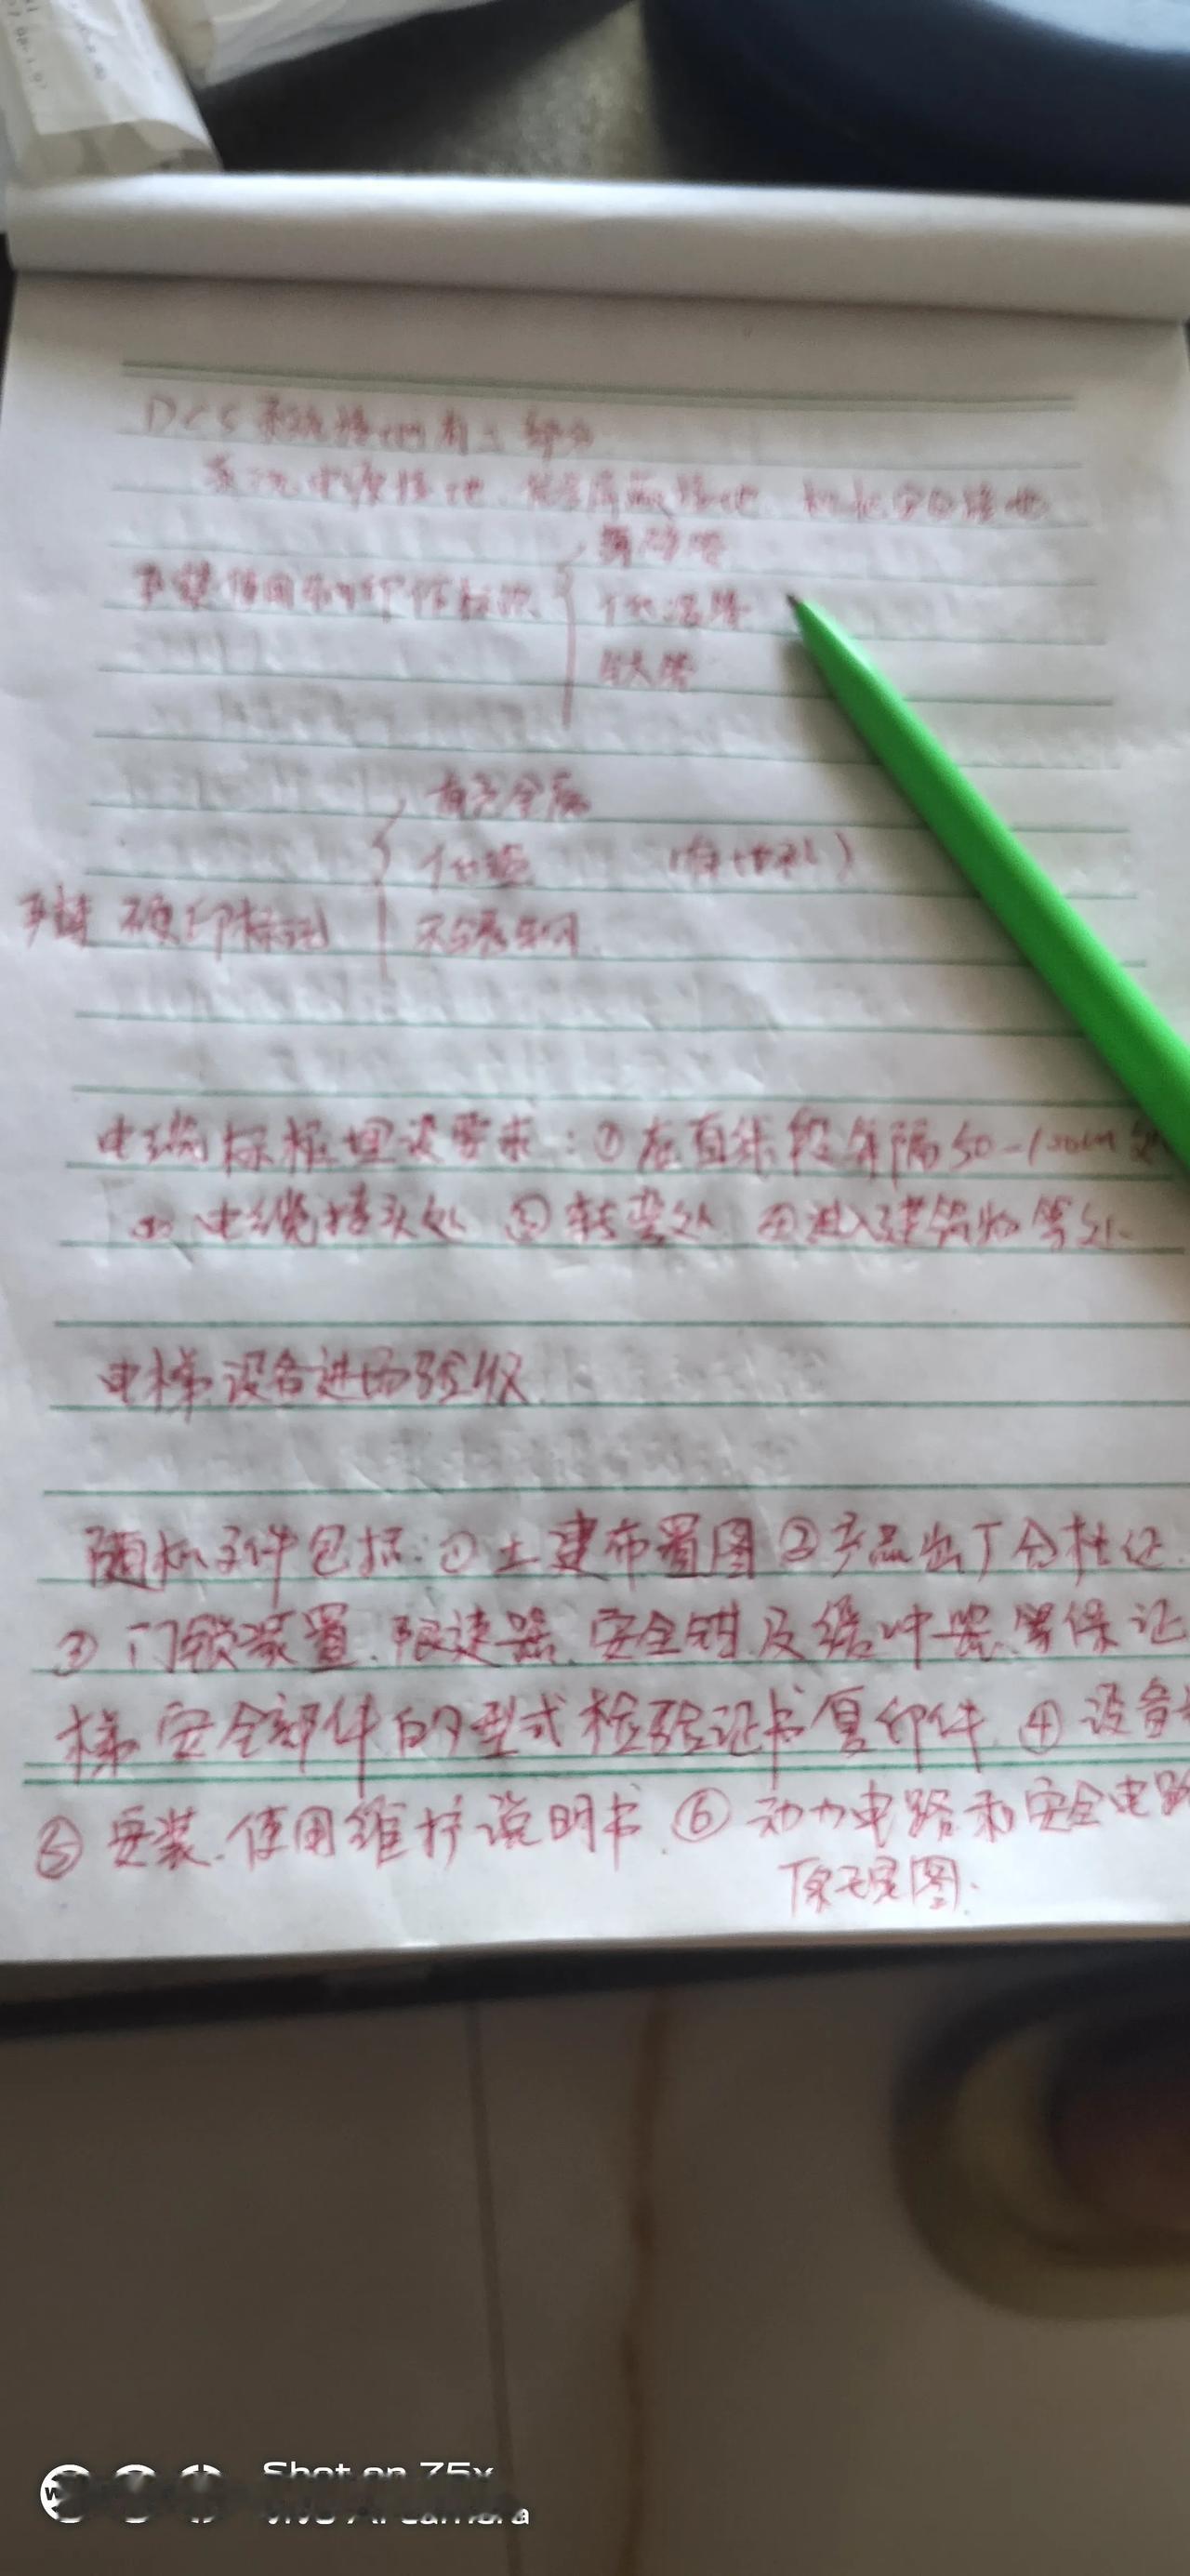 DCS系统接地有三部分
系统电源接地、信号屏蔽接地、机柜安全接地
严禁使用
低温
有色金属
低温
严禁 硬印标记 不锈钢
电缆标桩埋设要求：①在直线段每隔50-100m
② 电缆接头处 ③转弯处 ④进入建筑物等处
电梯设备进场验收
随机文件包括：①土建布置图 ②产品出厂合格证.
③门锁装置.限速器.安全钳及缓冲器等保证
梯安全部件的型式检验证书复印件. ④设备
⑤安装.使用维护说明书. ⑥动力电路和安全电路
原理图.
Shot on Z5x
vivo AI camera